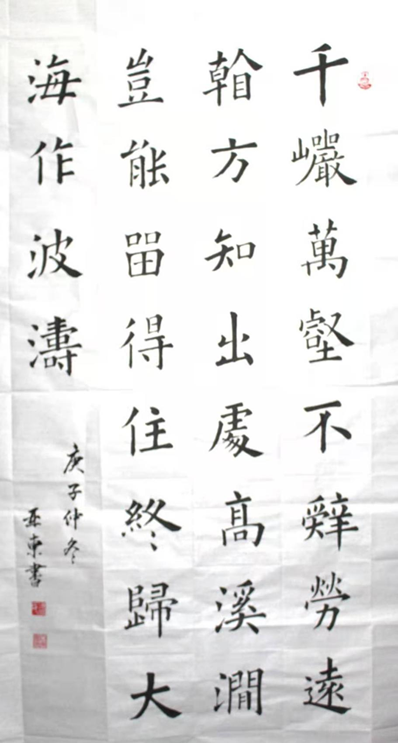 千巗萬壑不辭勞遠
看方知出處高溪澗
豈能㽞得住終歸大
海作波濤
庚子仲冬
亚東書